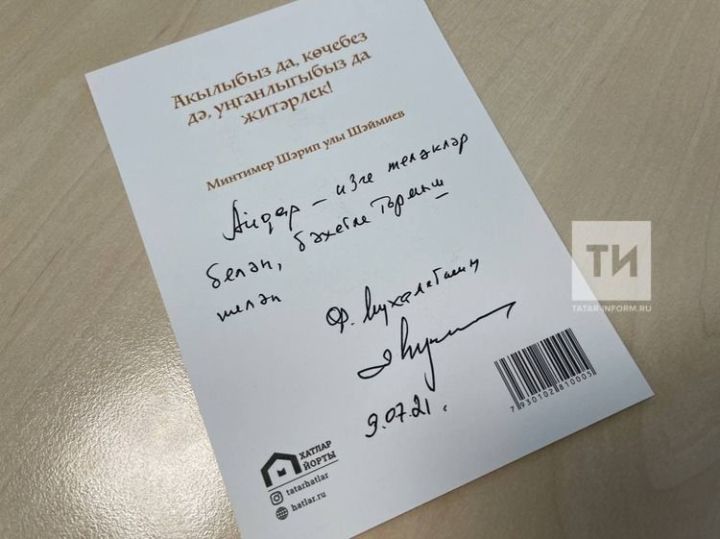 Акылыбыз да, көчебез
дә, уңганлыгыбыз да
җитәрлек!
Минтимер Шәрип улы Шәймиев
Айдар – изге теләкләр
белән, бәхетле тормыш
телән
Ф.
9.07.21
ТИ
TATAR-INFORM.RU
7930102810005
ХАТЛАР
ЙОРТЫ
tatarhatlar
hatlar.ru